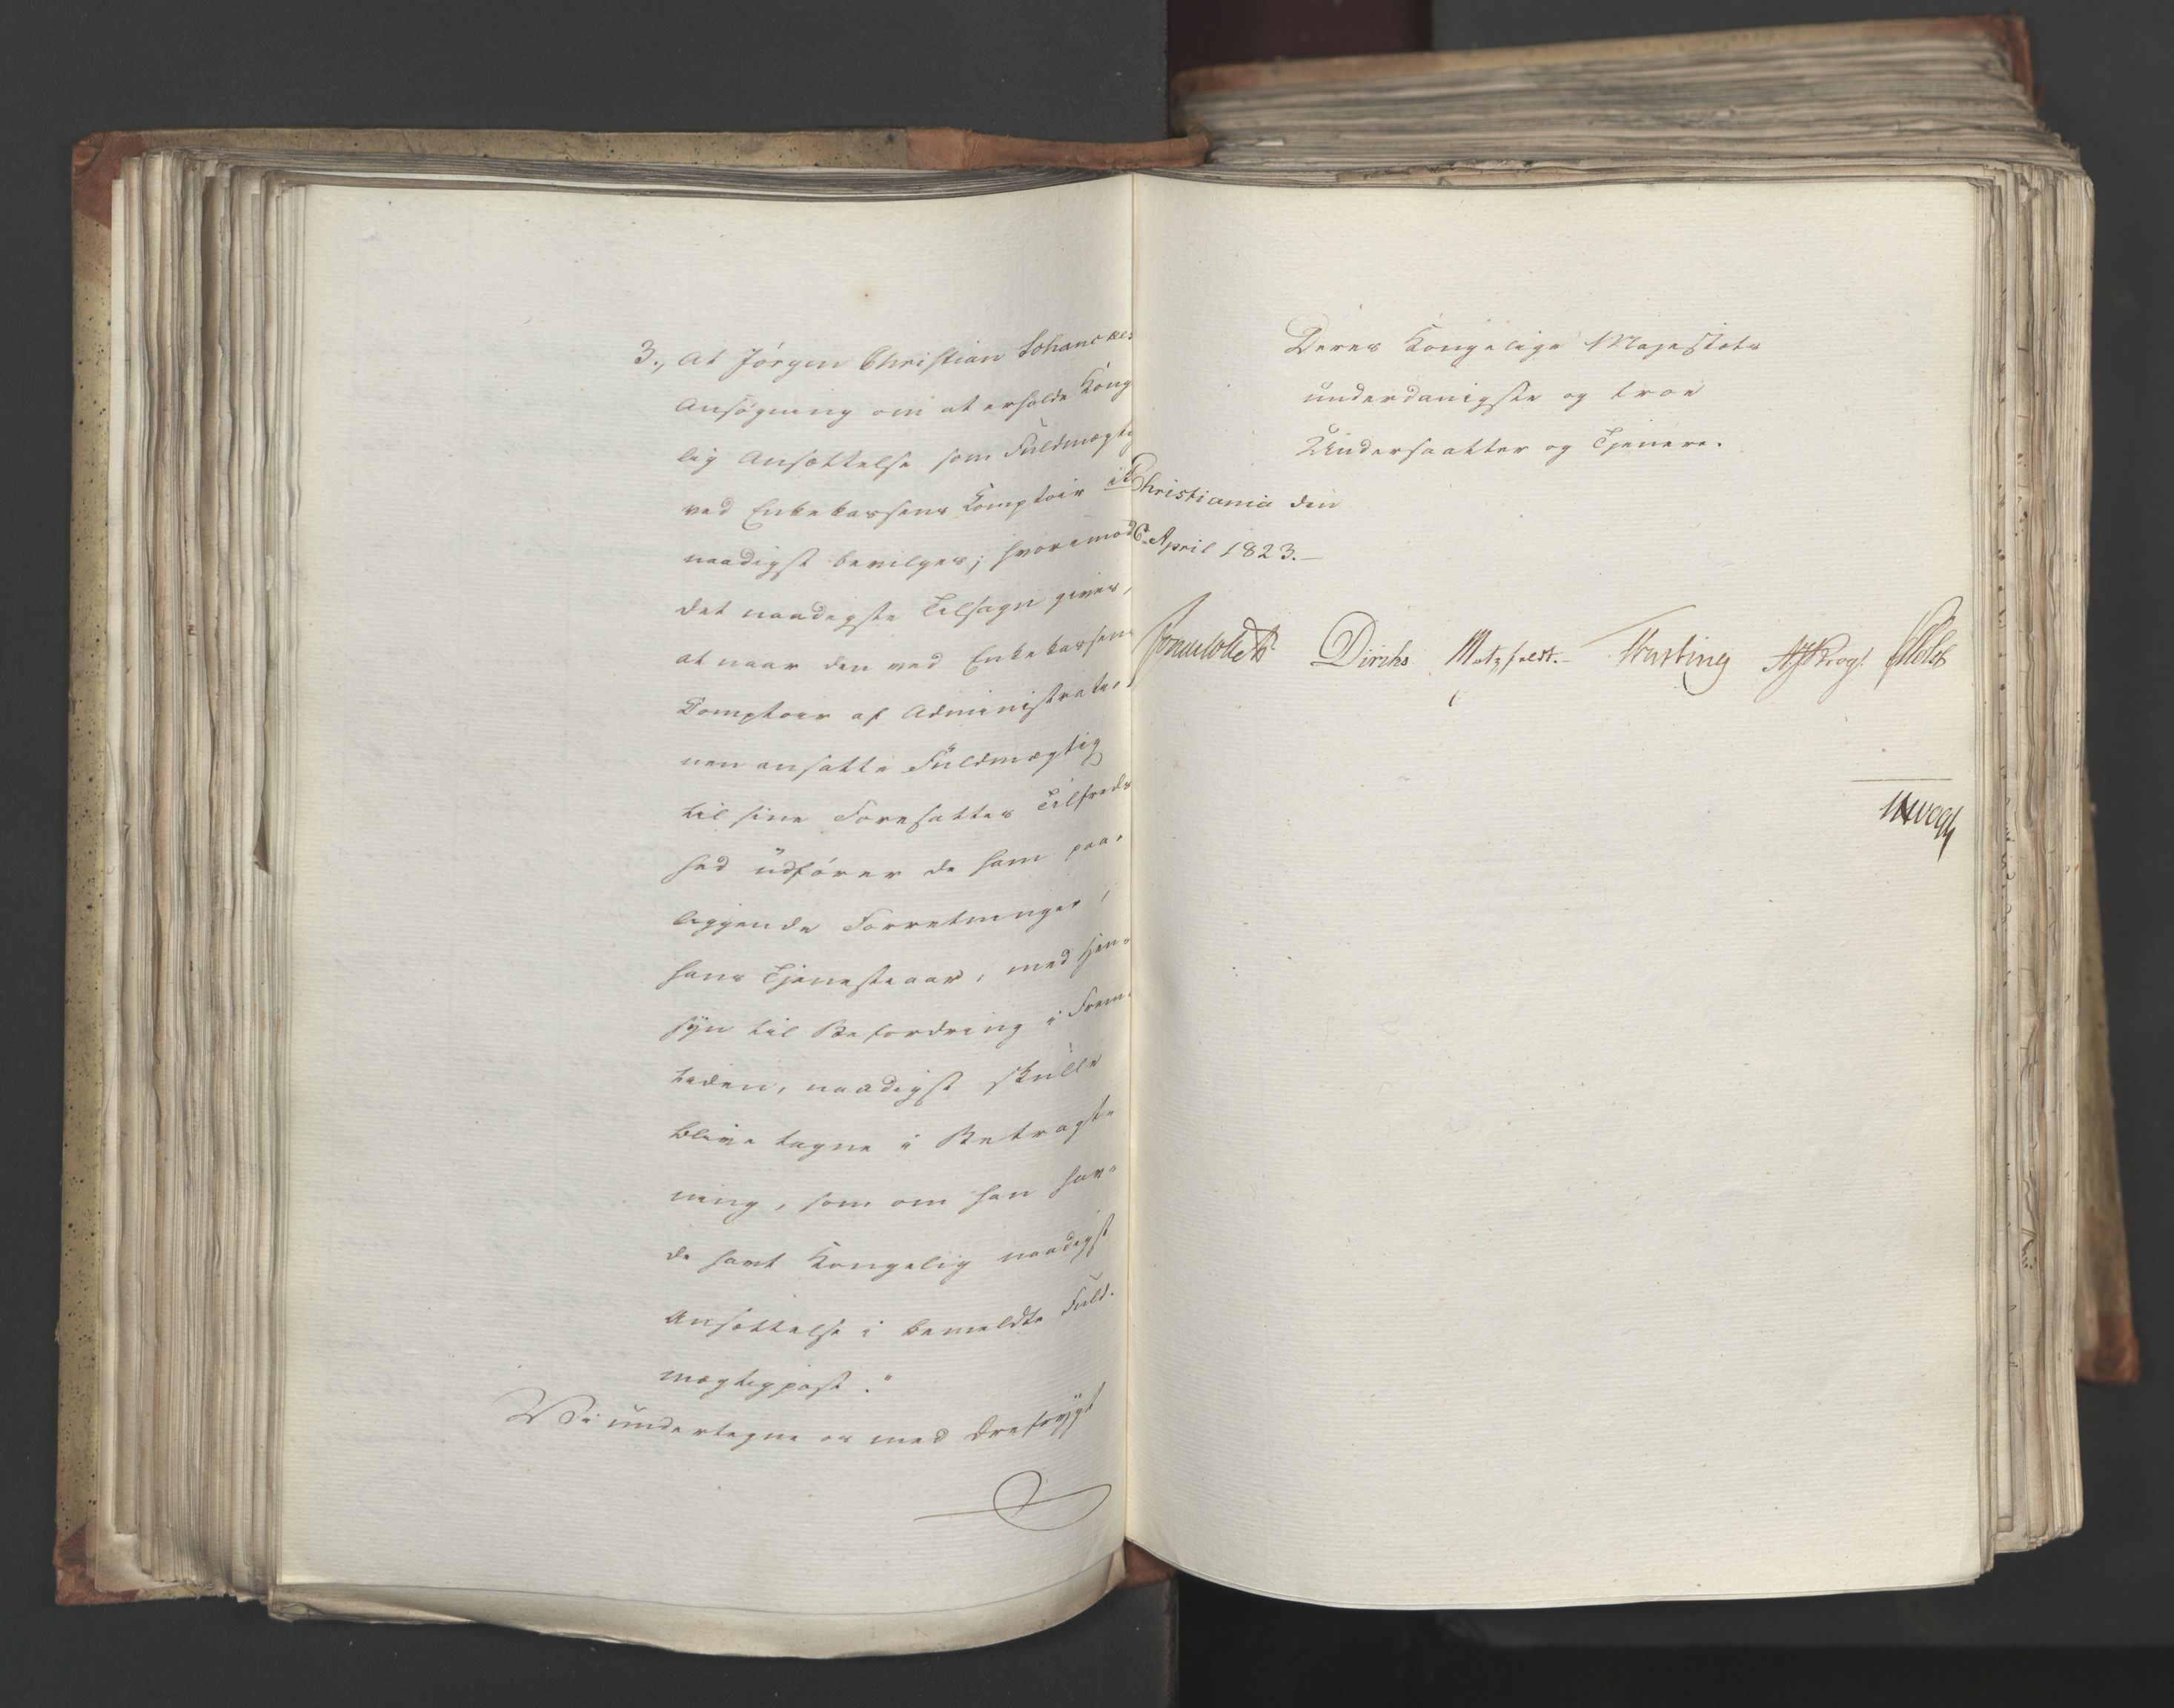 3., At Jørgen Christian Schanckes
Ansøgning om at erholde Kong
lig Ansættelse som Fuldmægtig
ved Enkekassens Comptoir ei
naadigst bevilges; hvorimod
det naadigste Tilsagn gives,
at naar den ved Enkekassens
Comptoir af Administratio,
nen ansatte Fuldmægtig
til sine Foresattes Tilfreds
hed udfører de ham paa,
liggende Forretninger,
hans Tjenesteaar, med Hen,
syn til Befordring i Frem,
tiden, naadigst skulle
blive tagne i Betragt,
ning, som om han hav,
de havt Kongelig naadigst
Ansættelse i bemeldte Fuld.
mægtigpost."
Vi undertegne os med Ærefrygt
Deres Kongelige Majestæts
underdanigste og troe
Undersaatter og Tjenere.
Christiania den
6. April 1823.
Sommerfeldt Diriks Motzfeldt. Fasting Krog. Holst
Vogt